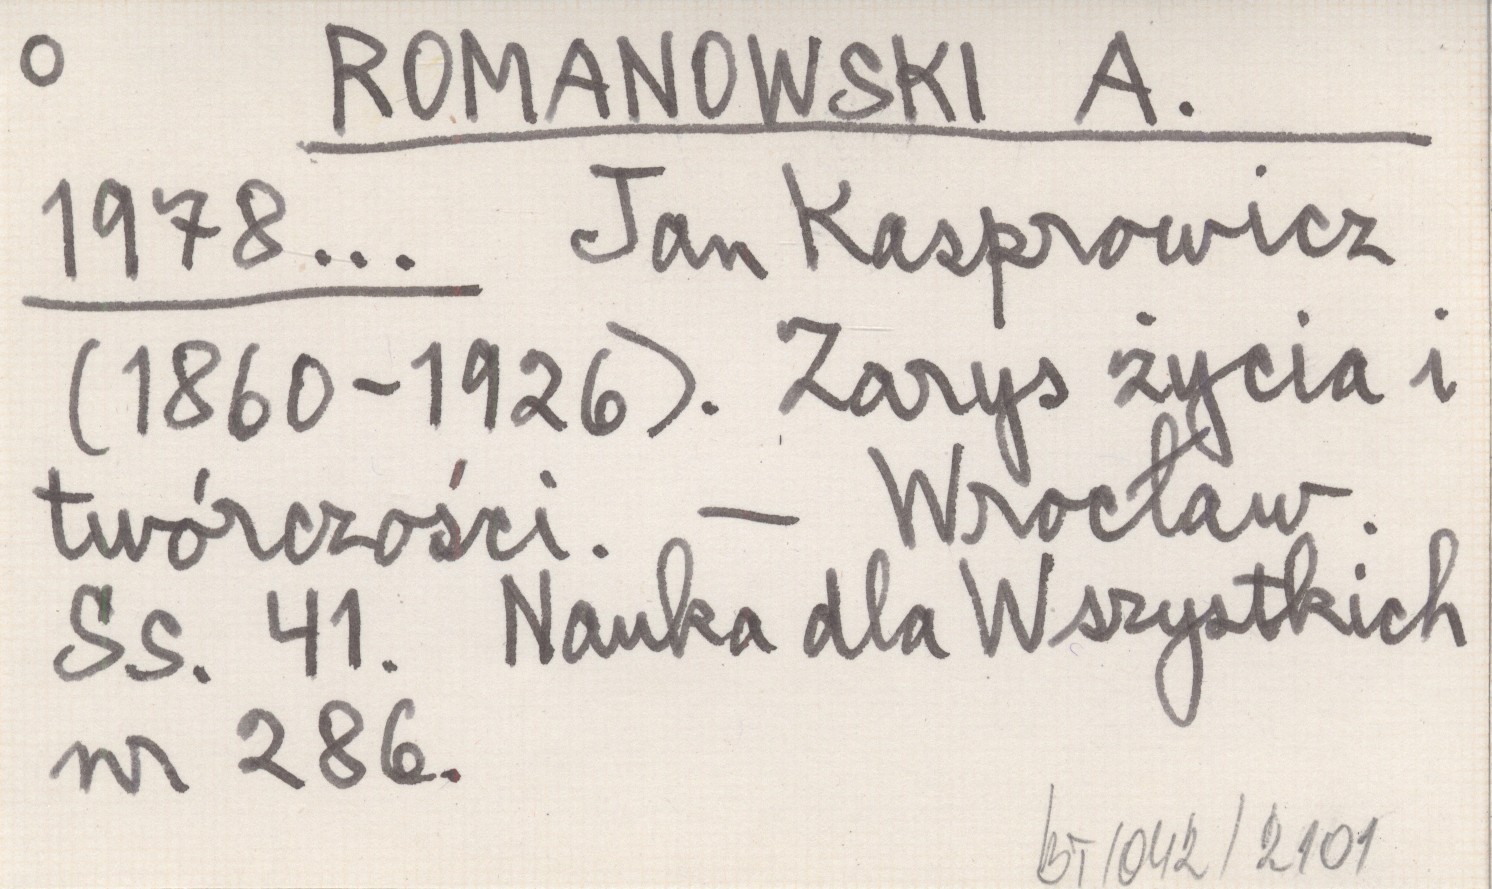 O ROMANOWSKI A.
1978... Jan Kasprowicz
(1860-1926). Zarys życia i
twórczości. — Wrocław.
Ss. 41. Nauka dla Wszystkich
nr 286.
BT/042/2101